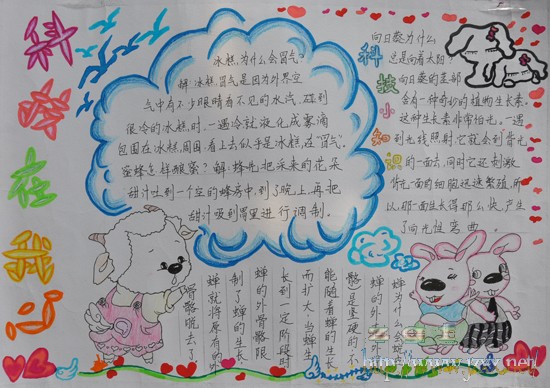 科技在我心
冰糕为什么会冒气?
解:冰糕冒气是因为外界空
气中有不少眼睛看不见的水汽,碰到
很冷的冰糕时,一遇冷就液化成雾滴
包围在冰糕周围,看上去似乎是冰糕在"冒气"。
蜜蜂怎样酿蜜?解:蜂先把采来的花朵
甜汁吐到一个空的蜂房中,到了晚上,再把
甜汁吸到胃里进行调制。
科技小知识
向日葵为什么
总是向着太阳?
向日葵的茎部
含有一种奇妙的植物生长素。
这种生长素非常怕光。一遇
到光线照射,它就会到背光
的一面去,同时它还刺激
背光一面的细胞迅速繁殖,所
以,那一面生长得那么快,产生
了向光性弯曲。
蝉为什么会
蝉的外
骼)是坚硬的,不
能随着蝉的生长
而扩大,当蝉生
长到一定阶段时
蝉的外骨骼限
制了蝉的生长,
蝉就将原有的外
骨骼脱去了